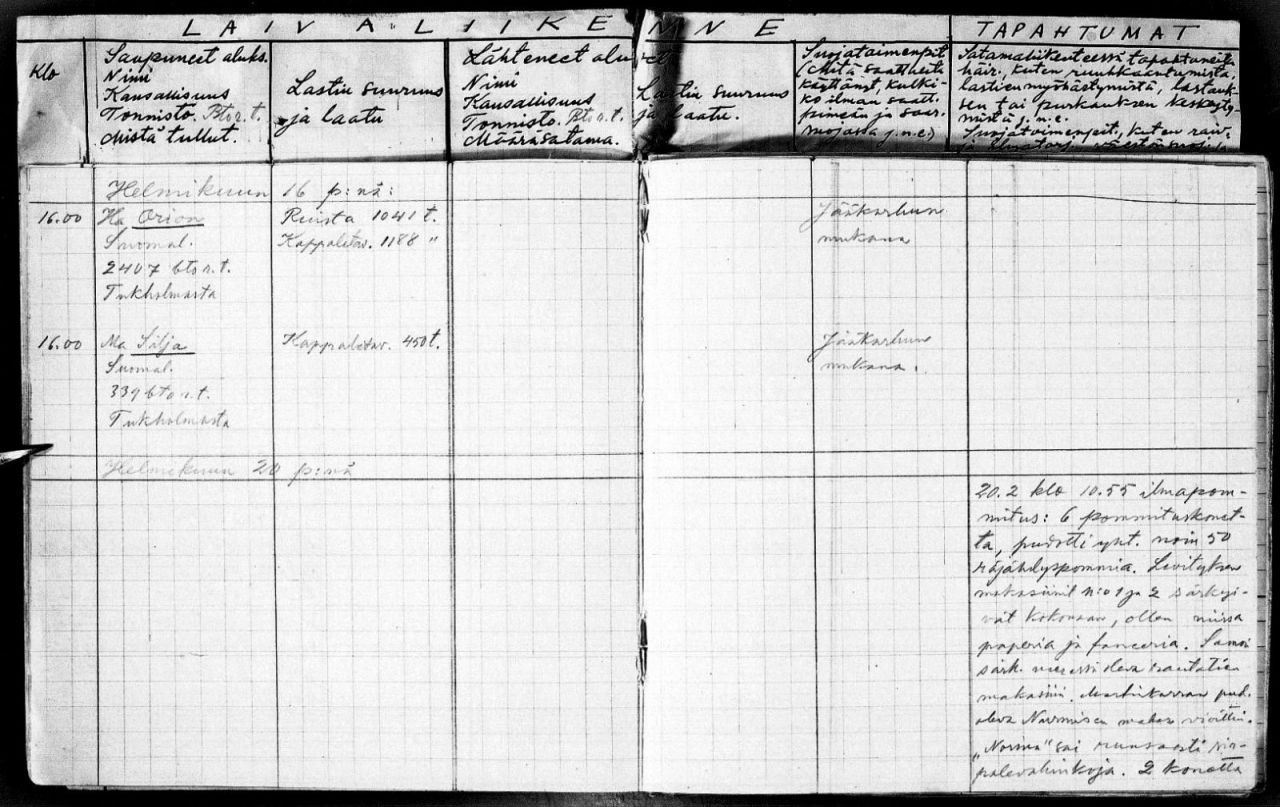 LAIVALIIKENNE
TAPAHTUMAT
Klo
Saapuneet aluks.
Nimi
Kansallisuus
Tonnisto. Bto r.t.
Mistä tullut.
Lastin suuruus
ja laatu
Lähteneet alukset
Nimi
Kansallisuus
Tonnisto. Bto r.t.
Määräsatama.
Lastin suuruus
ja laatu.
Suojatoimenpit
(Mitä saattueita
käyttänyt, kulki-
ko ilman saatt.
pimeän ja saar.
suojassa j.n.e.)
Satamaliikenteessä tapahtuneita
häir., kuten ruuhkaantumista,
lastien myöhästymistä, lastauk-
sen tai purkauksen keskeyty-
mistä j.n.e.
Suojatoimenpeit., kuten raiv.
Helmikuun 16 p:nä:
16.00 Ha Orion Ruista 1041 t. Jääkarhun
Suomal. Kappaletav. 1188 " mukana
2407 bto r.t.
Tukholmasta
16.00 Ma Silja Kappaletav. 450 t. Jääkarhun
Suomal. mukana.
339 bto r.t.
Tukholmasta
Helmikuun 20 p:nä
20.2 klo 10.55 ilmapom-
mitus: 6 pommituskonet-
ta, pudotti yht. noin 50
räjähdyspommia. Levityksen
makasiinit n:o 1 ja 2 särkyi-
vät kokonaan, ollen niissä
paperia ja faneeria. Samoin
särk. vieressä oleva rautatien
makasiini. Martinkarran pud.
oleva Nurmisen makas. vioittui.
"Norma" sai runsaasti sir-
palevahinkoja. 2 konetta